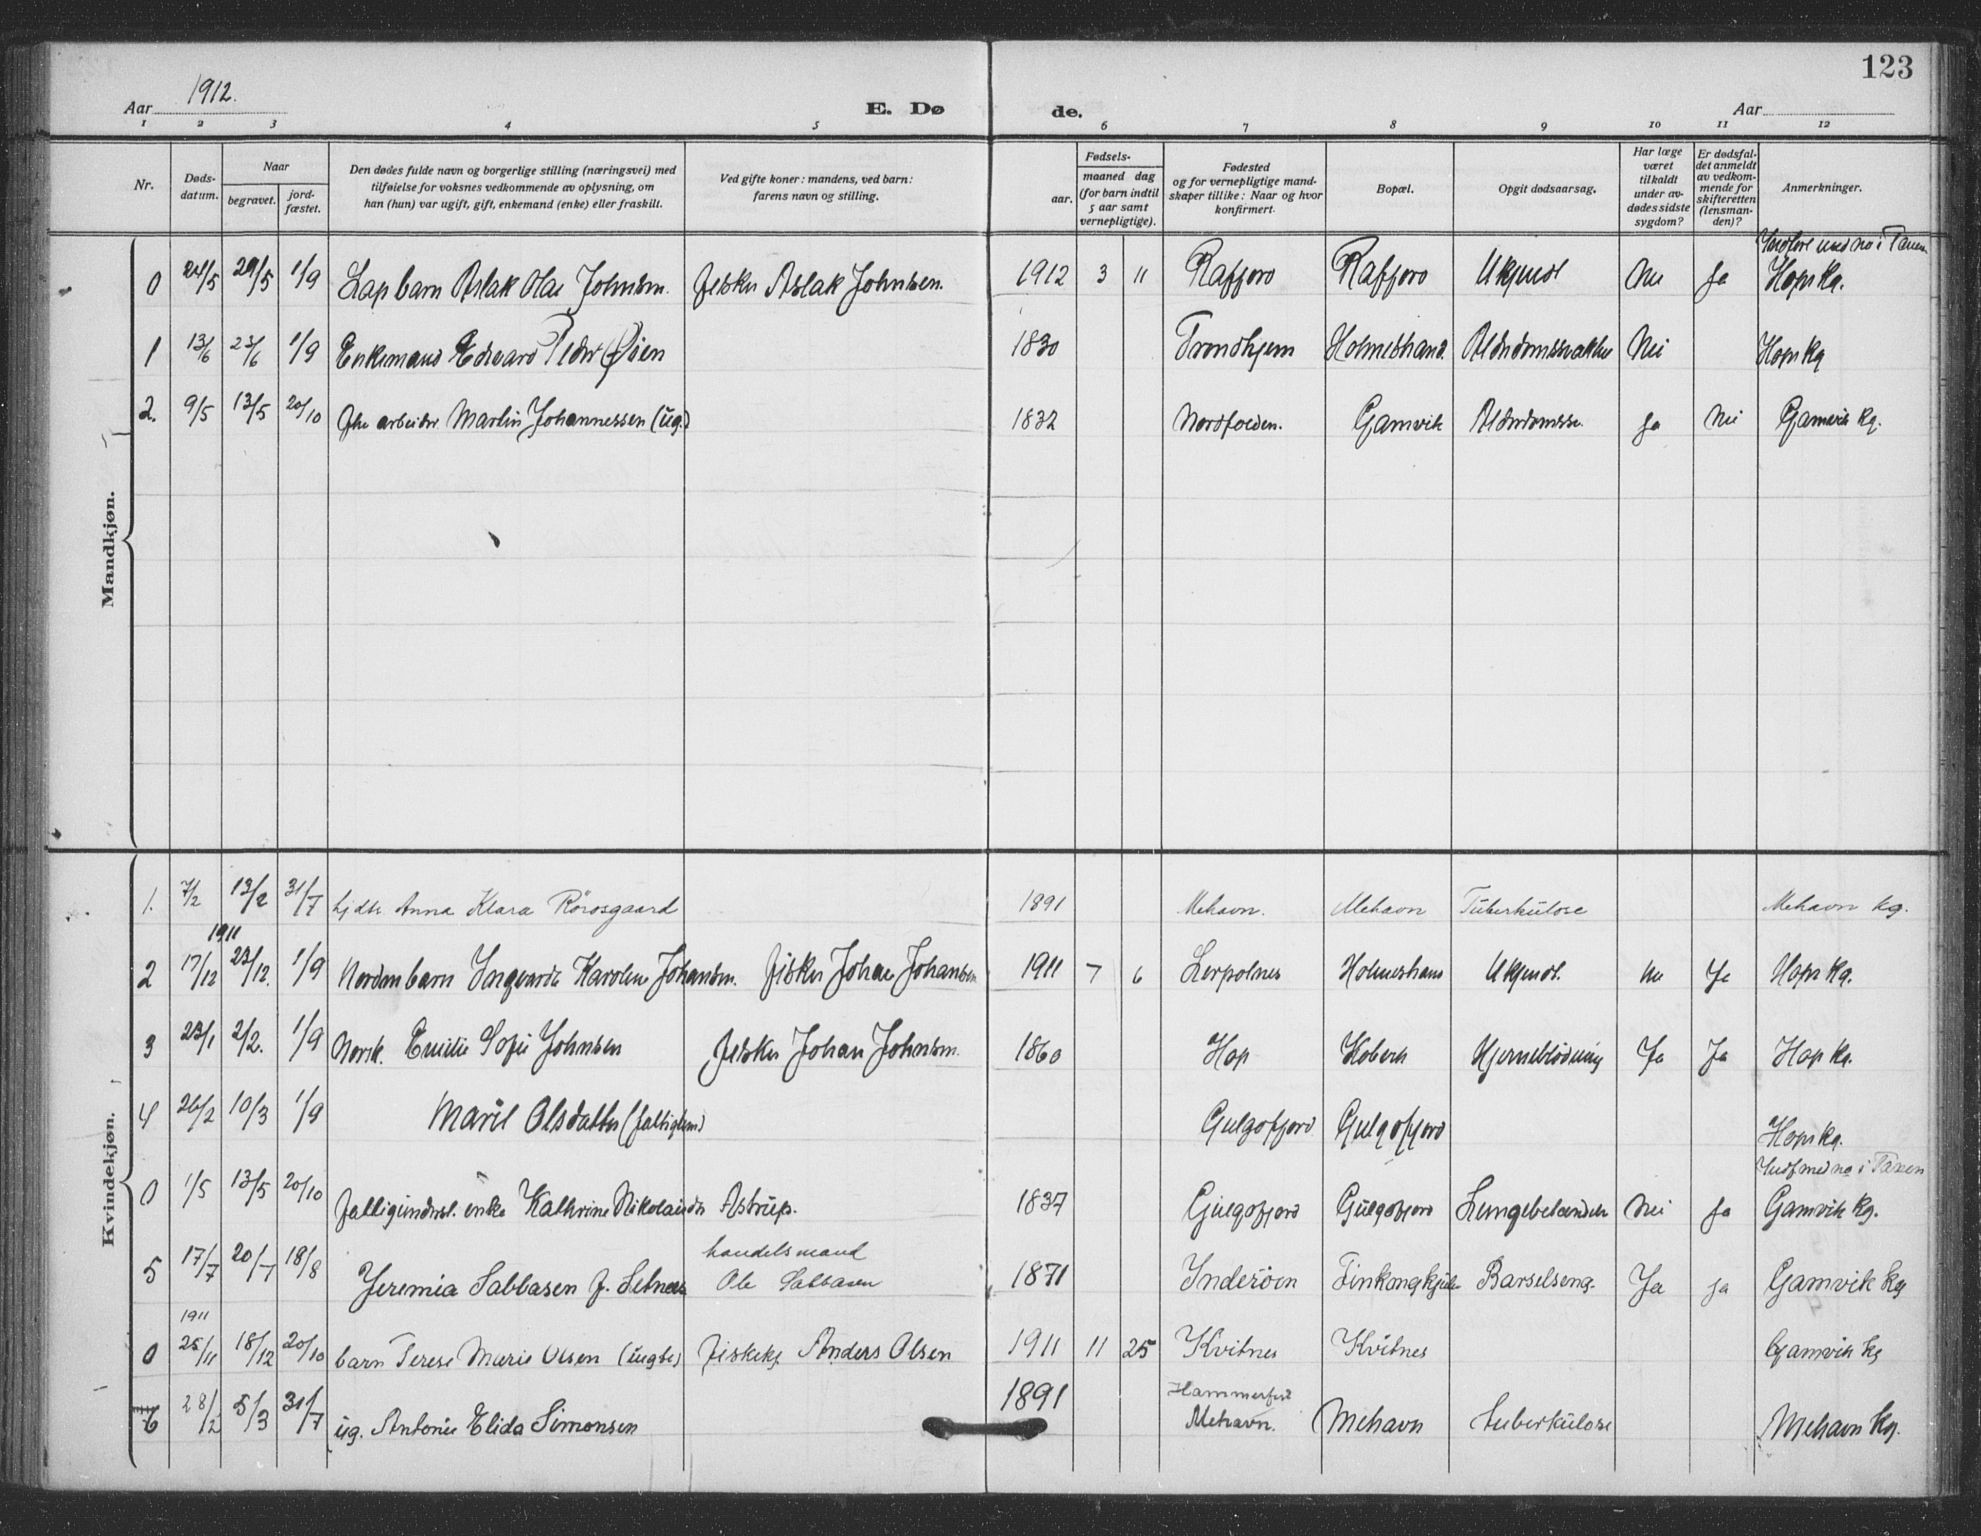 123
Aar 1912. E. Dø de. Aar
1 2 3 4 5 6 7 8 9 10 11 12
Nr.
Døds-
datum.
Naar
begravet.
jord-
fæstet.
Den dødes fulde navn og borgerlige stilling (næringsvei) med
tilføielse for voksnes vedkommende av oplysning, om
han (hun) var ugift, gift, enkemand (enke) eller fraskilt.
Ved gifte koner: mandens, ved barn:
farens navn og stilling.
Fødsels-
aar.
maaned dag
(for barn indtil
5 aar samt
vernepligtige).
Fødested
og for vernepligtige mand-
skaper tillike: Naar og hvor
konfirmert.
Bopæl.
Opgit dødsaarsag.
Har læge
været
tilkaldt
under av-
dødes sidste
sygdom?
Er dødsfal-
det anmeldt
av vedkom-
mende for
skifteretten
(lensman-
den)?
Anmerkninger.
Mandkjøn.
0 24/5 29/5 1/9 Lap barn Aslak Olai Johnsen. fisker Aslak Johnsen. 1912 3 11 Rafjord Rafjord Ukjendt Nei Ja Hops kg.
1 13/6 23/6 1/9 Enkemand Edvard Peder Øien 1830 Trondhjem Holmeshand Nei Hops kg
2. 9/5 13/5 20/10 arbeider Martin Johannessen (ug.) 1832 Nordfolden. Gamvik Ja Nei Gamvik kg.
Kvindekjøn.
1. 7/2 13/2 31/7 Anna Klara Rørosgaard 1891 Mehavn. Mehavn Tuberkulose Mehavn kg.
1911
2 17/12 23/12. 1/9 Norden barn Karoline Johansen. fisker Johan Johansen 1911 7 6 Lerpolnes Ukjendt. Ja Hops kg.
3 23/1 2/2. 1/9 Norsk. Emilie Sofie Johnsen fisker Johan Johnsen. 1860 Hop Hjerneblødning Ja Ja Hop kg.
4 26/2 10/3 1/9 Marit Olsdatter (fattiglem) Gulgofjord Gulgofjord Hops kg.
0 1/5 13/5 20/10 fattigunderst. enke Kathrine Nikolaisdtr Astrup. 1837 Gulgofjord Gulgofjord Lungebetændelse Nei Ja Gamvik kg.
handelsmand
5 17/7 20/7 18/8 Jeremia Sabbasen f. Setnæs Ole Sabbasen 1871 Inderøen Finkongkjeilen Barselseng. Ja ja Gamvik kg
1911
0 25/11 18/12 20/10 barn Terese Marie Olsen (ugte) fisker Anders Olsen 1911 11 25 Kvitnes Kvitnes Gamvik kg
Hammerfest
6 28/2 5/3 31/7 ug. Antonie Elida Simonsen 1891 Mehavn. Mehavn Tuberkulose Mehavn kg.